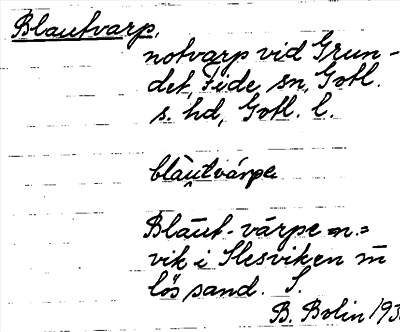 Blautvarp,
notvarp vid Grun-
det, Fide sn, Gotl.
s. hd, Gotl. l.
blàutvárpe
Blaut-värpe =n.=
vik i Slesviken m
lös sand. S.
B. Bolin 193